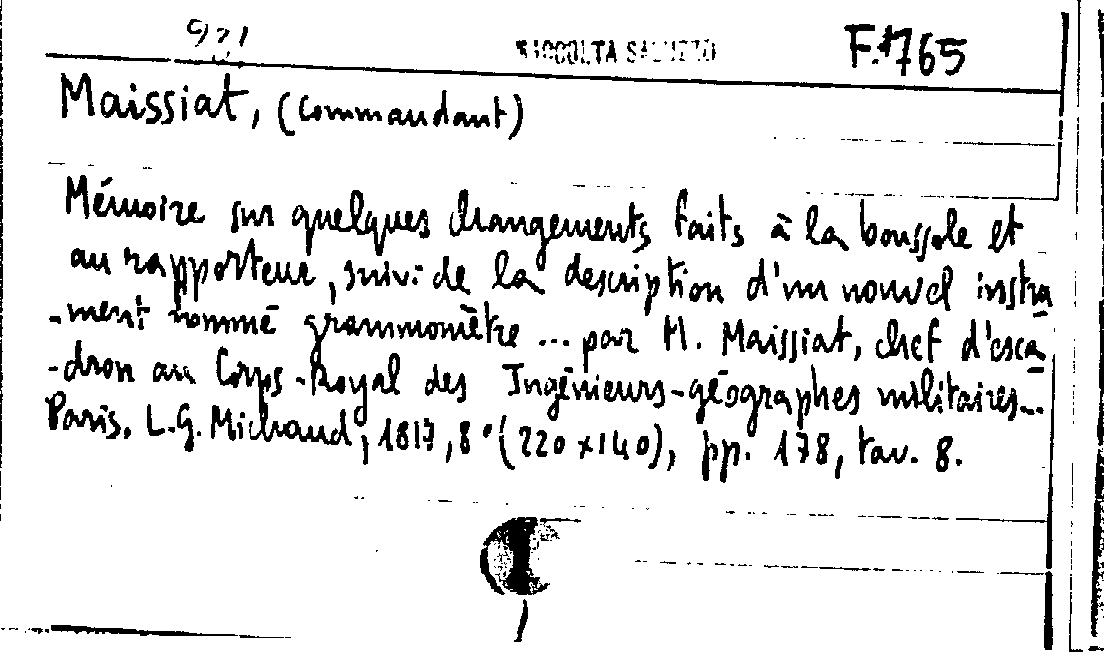 921
RACCOLTA SALUZZO
F.1765
Maissiat, (Commandant)
Mémoire sur quelques changements faits à la boussole et
au rapporteur, suivi de la description d'un nouvel instru
-ment nommé grammomètre ... par M. Maissiat, chef d'esca
-dron au Corps-Royal des Ingénieurs-géographes militaires...
Paris, L.G. Michaud, 1817, 8° (220×140), pp. 178, tav. 8.